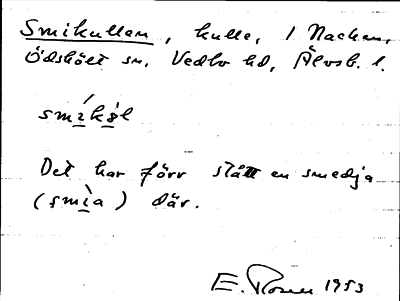 Smikullen, kulle, i Nacken,
Ödskölt sn. Vedbo hd, Älvsb. l.
smíkól
Det har förr stått en smedja
(smìa) där.
E. 1953